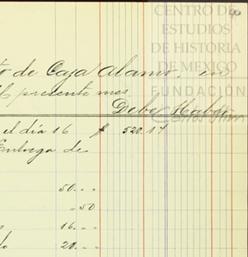 CENTRO DE
ESTUDIOS
DE HISTORIA
DE MEXICO
FUNDACIÓN
de Caja Alamo. en
presente mes
Debe Haber
el día 16 $ 528.17
Entrega de
50.--
-50
16.--
20.--